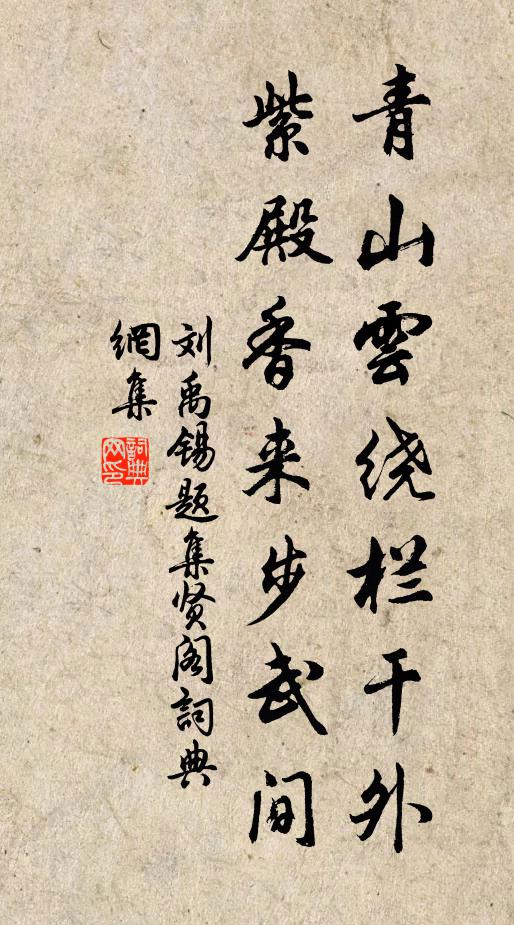 青山雲绕栏干外
紫殿香来步武间
刘禹锡题集贤阁詞典
網集
詞典
网印